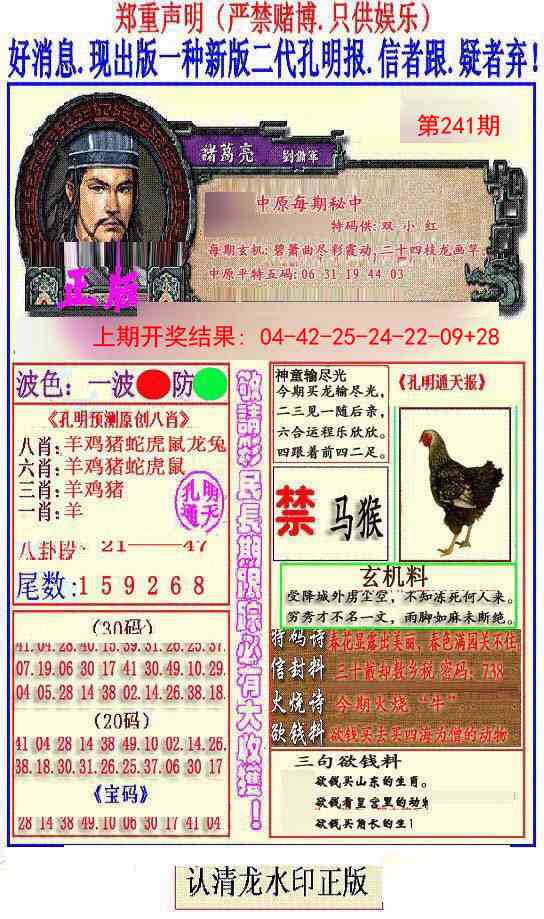 郑重声明（严禁赌博.只供娱乐）
好消息.现出版一种新版二代孔明报.信者跟.疑者弃!
第241期
諸萬亮
中原每期秘中
特码供:双 小 红
每期玄机:碧萧曲尽彩霞动,二十四枝龙画竿.
中原平特五码:06 31 19 44 03
正版
上期开奖结果: 04-42-25-24-22-09+28
波色: 一波 防
《孔明预测原创八肖》
八肖:羊鸡猪蛇虎鼠龙兔
六肖:羊鸡猪蛇虎鼠
三肖:羊鸡猪
一肖:羊
孔明
通天
21——47
尾数:159268
(30码)
41.04.28.40.15.39.31.26.25.37
07.19.06.30 17 41 30.49.10.29
04 05.28 14 38 02.14.26.38.18
(20码)
41 04 28 14 38 49.10 02.14.26.
38.18.30.31.26.25.37.06 30 17
《宝码》
28 14 38 49.10 06 30 17 41 04
敬請彩民長期跟踪必有大收獲!
神童输尽光
今期买龙输尽光,
二三见一随后亲,
六合运程乐欣欣。
四跟着前四二足。
《孔明通天报》
禁 马猴
玄机料
受降城外虏尘空，不知冻死何人来。
穷秀才不名一文，雨脚如麻未断绝。
特码诗 春花显露出美丽、春色满园关不住
信封料 三十敌却数乡税 密码:738
火烧诗 今期火烧“牛”
欲钱料 欲钱买去买四海为僧的动物
三句欲钱料
欲钱买山东的生肖。
欲钱看皇宫里的动物
欲钱买角长的生
认清龙水印正版